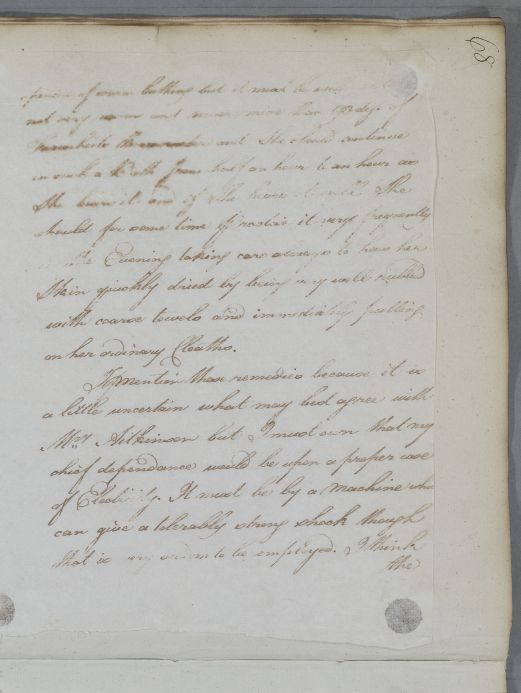 68
of warm bathing but it must be
not very warm and never more than 98 deg. of
Farenheits Thermometer and She should continue
in such a Bath from half an hour to an hour as
She bears it and if She bears it well She
should for some time practise it very frequently
in the Evening taking care always to have her
Skin quickly dried by being very well rubbed
with coarse towels and immediately putting
on her ordinary Cloaths.
I mention these remedies because it is
a little uncertain what may best agree with
Mrs Atkinson but I must own that my
chief dependance would be upon a proper use
of Electricity. It must be by a Machine who
can give a tolerably strong shock though
that is very seldom to be employed. I think
the